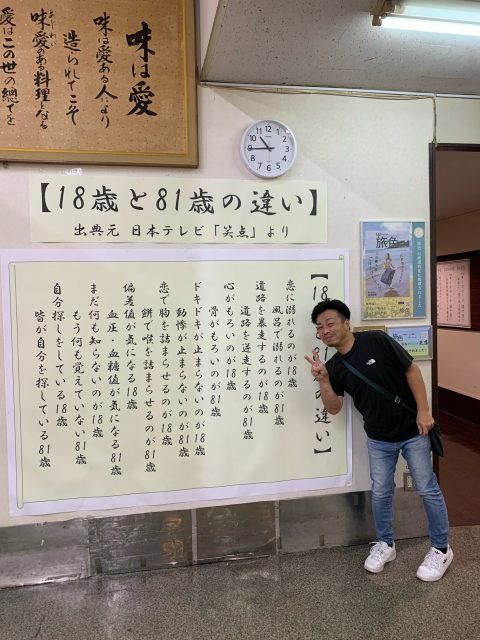 味は愛
味は愛ある人により
造られてこそ
味愛のある料理となる
愛はこの世の總てを
【18歳と81歳の違い】
出典元 日本テレビ「笑点」より
の違い】
恋に溺れるのが18歳
風呂で溺れるのが81歳
道路を暴走するのが18歳
道路を逆走するのが81歳
心がもろいのが18歳
骨がもろいのが81歳
ドキドキが止まらないのが18歳
動悸が止まらないのが81歳
恋で胸を詰まらせるのが18歳
餅で喉を詰まらせるのが81歳
偏差値が気になる18歳
血圧・血糖値が気になる81歳
まだ何も知らないのが18歳
もう何も覚えていない81歳
自分探しをしている18歳
皆が自分を探している81歳
旅色